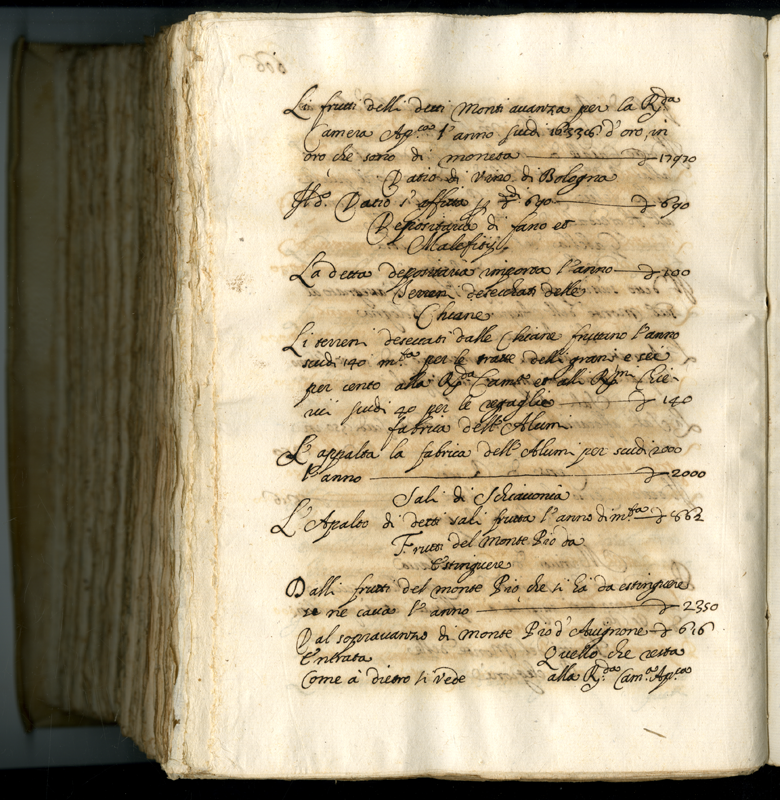 Li frutti delli detti Monti avanza per la R.da
Camera Ap.ca l'anno scudi 16336 d'oro, in
oro che sono di moneta — 17970
Datio di vino di Bologna
Il d.o Datio s'affitta 690 — 690
Depositaria di fano et
Malefitij
La detta depositaria importa l'anno — 100
Terreni deseccati delle
Chiane
Li terreni deseccati dalle Chiane fruttano l'anno
scudi 140 m.ta per le tratte delli grani e sei
per cento alla R.da Cam.ra et alli R.mi Chie-
rici scudi 40 per le regaglie — 140
fabrica dell'Alumi
L'appalta la fabrica dell'Alumi per scudi 2000
l'anno — 2000
Sali di Schiavonia
L'Apalto di detti sali frutta l'anno di m.ta — 662
Frutti del Monte Pio da
Estinguere
Dalli frutti del monte Pio che si ha da estinguere
se ne cava l'anno — 2350
Dal sopravanzo di monte Pio d'Avignone — 616
Entrata Quello che resta
Come à dietro si vede alla R.da Cam.a Ap.ca